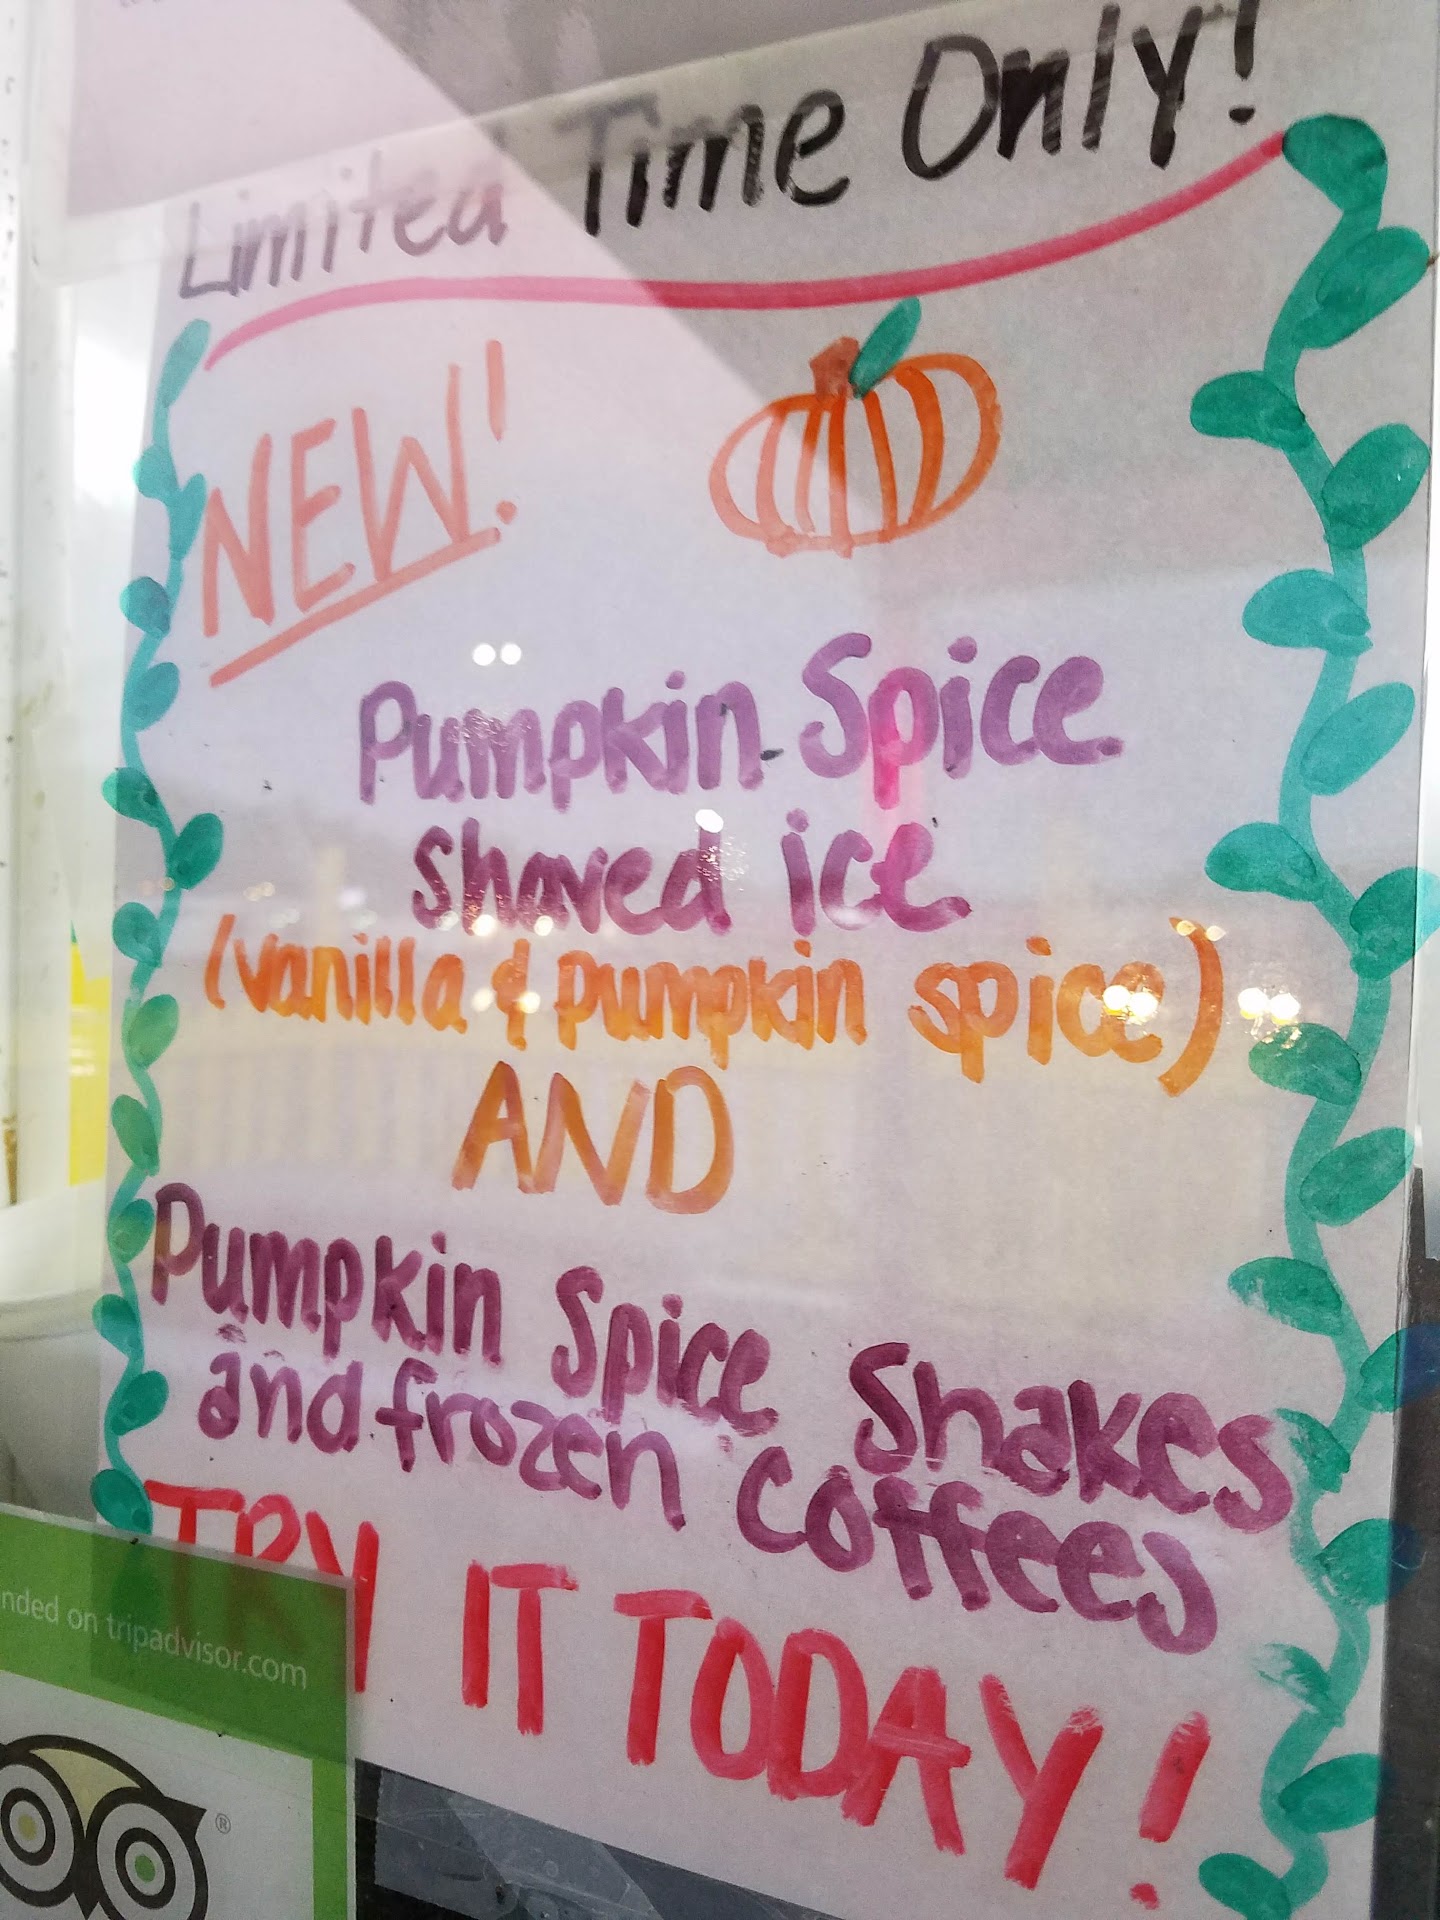 Limited Time Only!
NEW!
Pumpkin Spice
shaved ice
(vanilla & pumpkin spice)
AND
Pumpkin Spice Shakes
and frozen coffees
TRY IT TODAY!
nded on tripadvisor.com
®